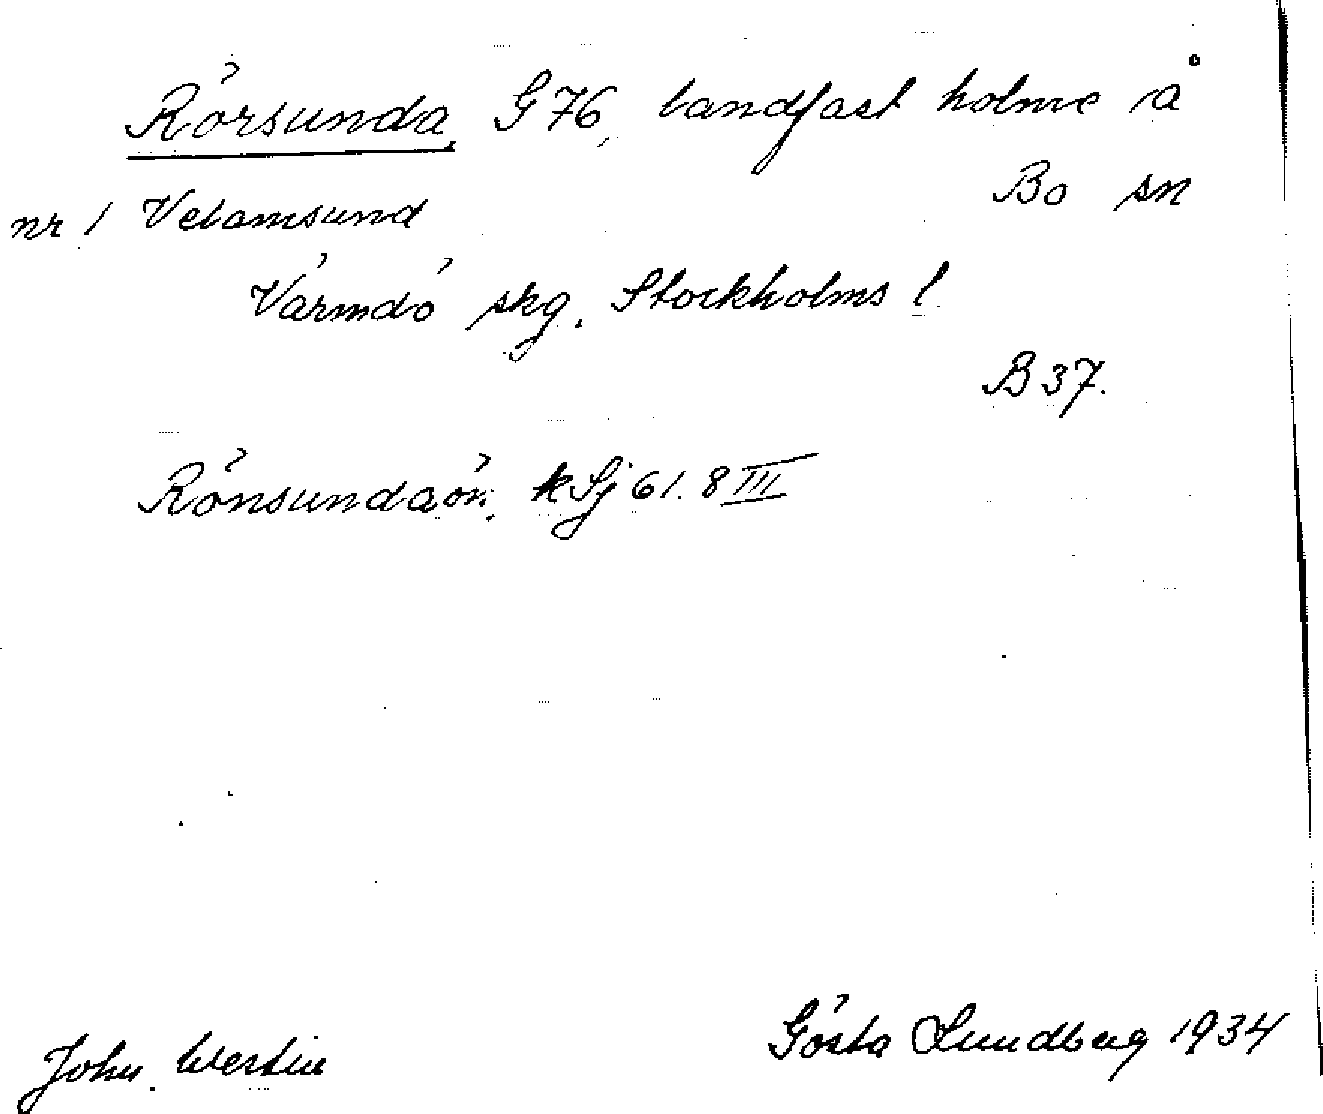 Rörsunda, G 76, landfast holme å
Bo sn
nr 1 Velamsund
Värmdö skg. Stockholms l.
B 37.
Rönsundaön. kSj 61. 8 III
John Westin
Gösta Lundberg 1934